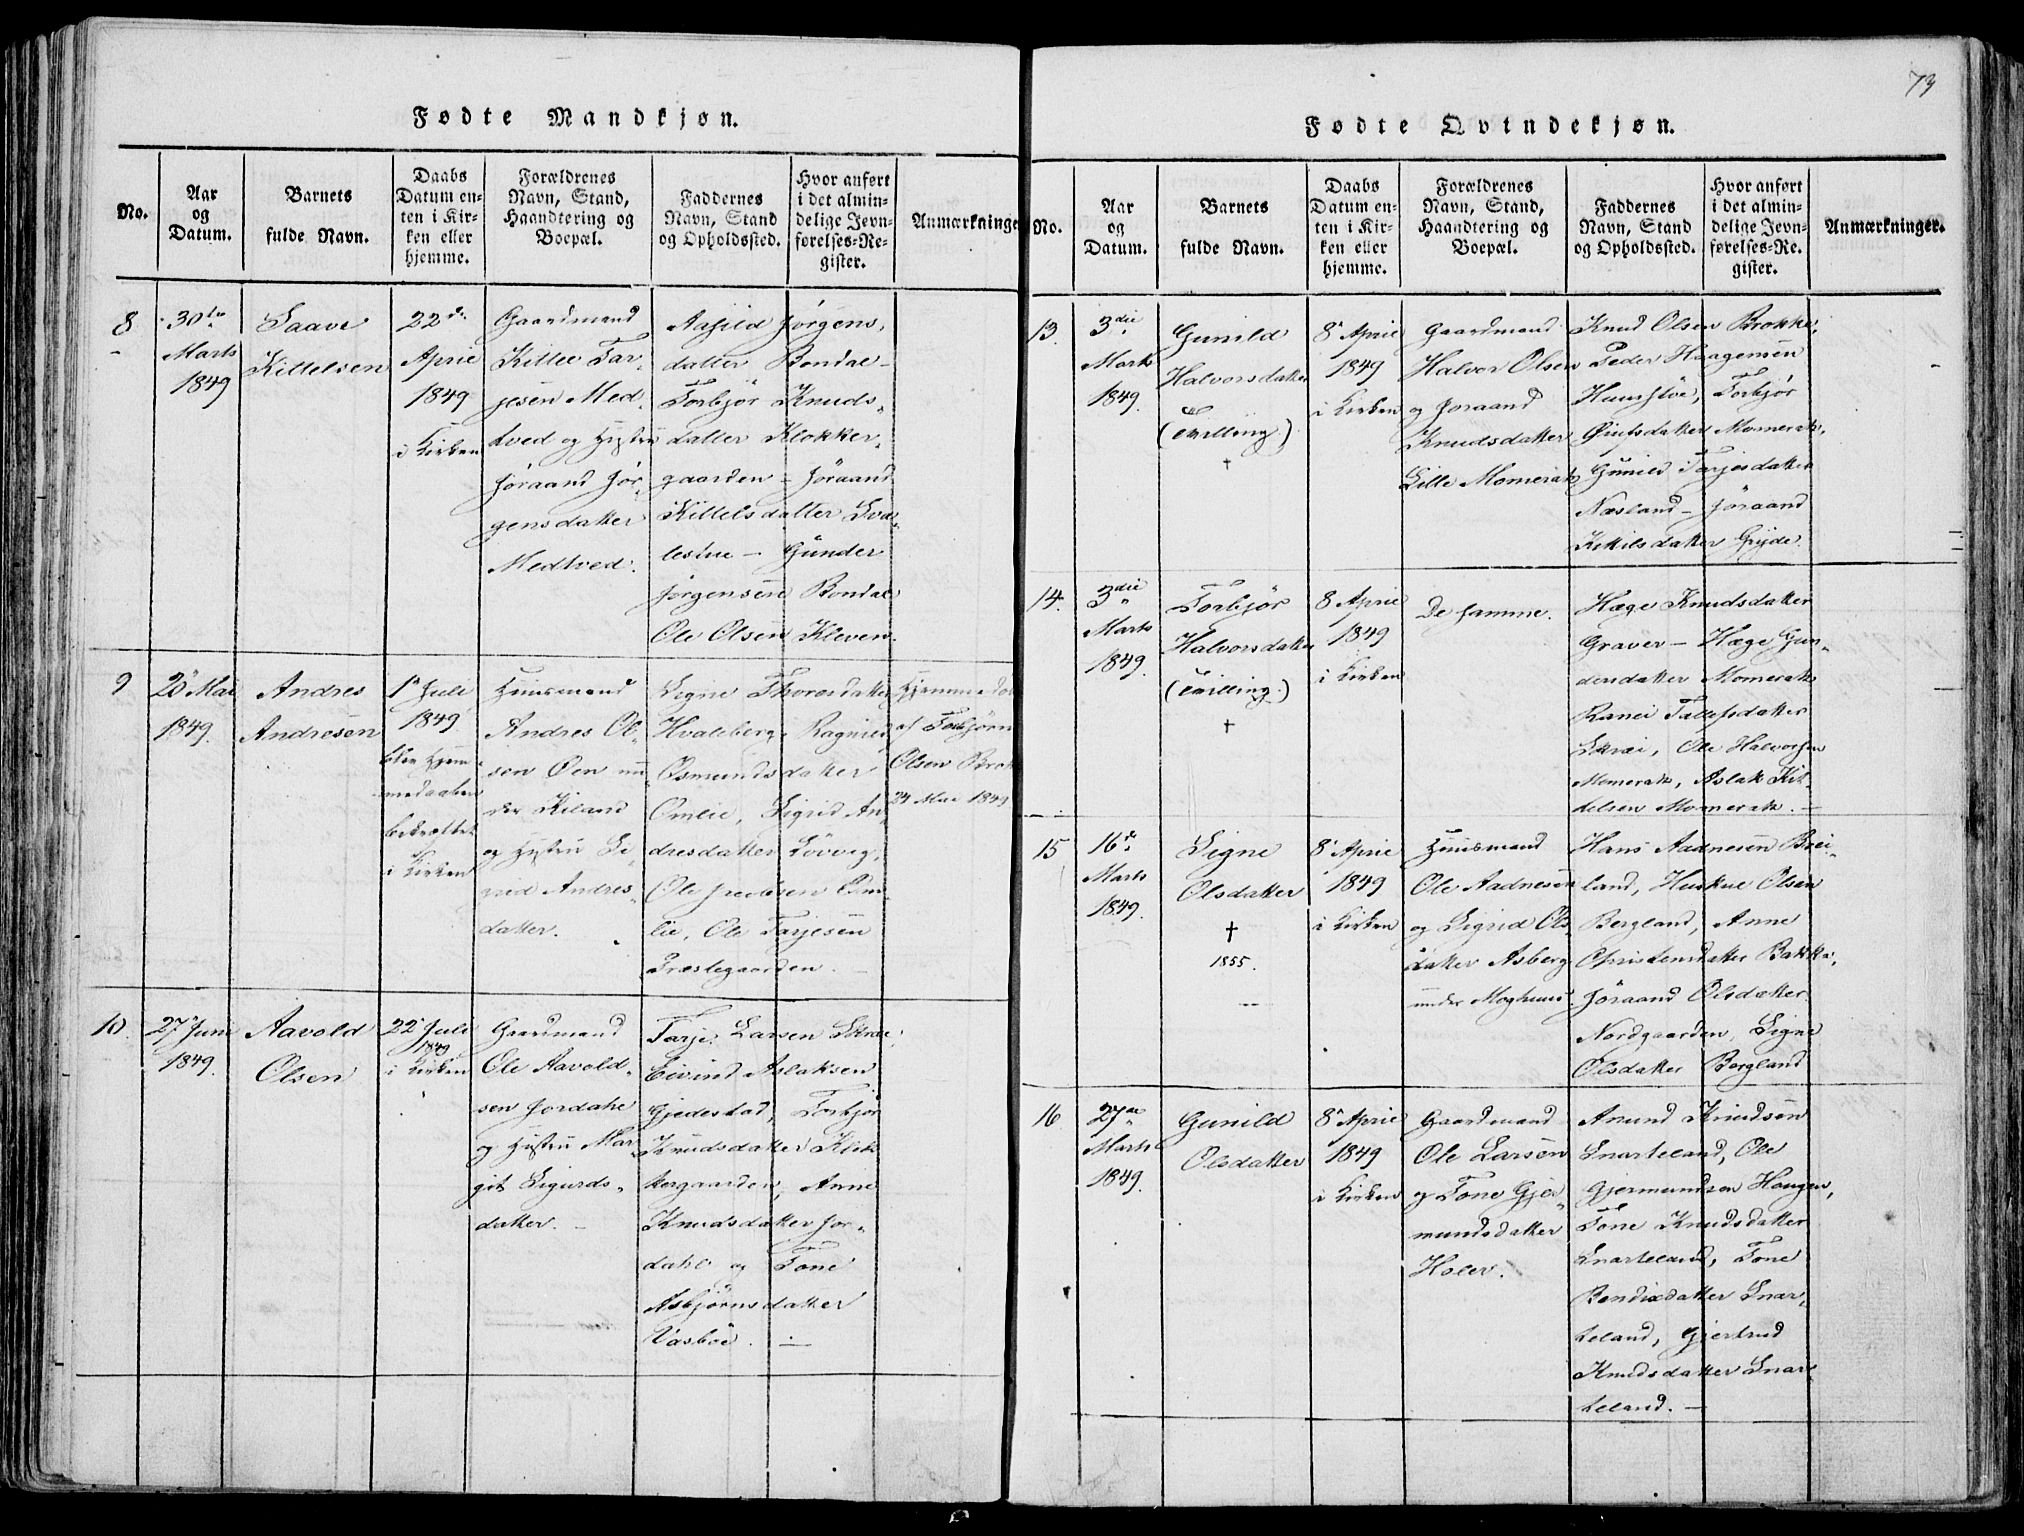 73
Fødte Mandkjøn.
No.
Aar
og
Datum.
Barnets
fulde Navn.
Daabs
Datum en-
ten i Kir-
ken eller
hjemme.
Forældrenes
Navn, Stand,
Haandtering og
Boepæl.
Faddernes
Navn, Stand
og Opholdssted.
Hvor anført
i det almin-
delige Jevn-
førelses-Re-
gister.
Anmærkninger
8
30te
Marts
1849
Saave
Kittelsen
22de
April
1849
i Kirken
Gaardmand
Kittel Tar-
jesen Med-
tved og Hustru
Jøraand Jør-
gensdatter
Medtved.
Aashild Jørgens-
datter Bondal -
Torbjør Knuds-
datter Klokker-
gaarden - Jøraand
Kittelsdatter
Gunder
Jørgensen Bondal
Ole Olsen Kleven.
9
20 Mai
1849.
Andres
Andresen
1 Juli
1849
blev hjem-
medaaben
bekræftet
i Kirken
Huusmand
Andres Ol-
sen Øen un-
der Kiland
og Hustru Si-
grid Andres-
datter.
Signe Thoresdatter
Hvaleberg, Ragnild
Osmundsdatter
Omlie, Sigrid An-
dresdatter Løvveg,
Ole Om-
lie, Ole Tarjesen
Præstegaarden.
Hjemmedøbt
af Torbjørn
Olsen Brok
24 Mai 1849
10.
27 Juni
1849.
Aavold
Olsen
22 Juli
1849
i Kirken
Gaardmand
Ole Aavold-
sen Jordahl
og Hustru Mar-
git Sigurds-
datter.
Tarje Larsen Skræi,
Eivind Aslaksen
Gjedestad, Torbjør
Knudsdatter Klok-
kergaarden, Anne
Knudsdatter Jor-
dahl og Tone
Asbjørnsdatter
Vasbøe.
Fødte Qvindekjøn.
No.
Aar
og
Datum.
Barnets
fulde Navn.
Daabs
Datum en-
ten i Kir-
ken eller
hjemme.
Forældrenes
Navn, Stand,
Haandtering og
Boepæl.
Faddernes
Navn, Stand
og Opholdssted.
Hvor anført
i det almin-
delige Jevn-
førelses-Re-
gister.
Anmærkninger.
13.
3die
Marts
1849.
Gunild
Halvorsdatter
(Tvilling)
†
8 April
1849
i Kirken
Gaardmand
Halvor Olsen
og Joraand
Knudsdatter
Lille Momerak
Knud Olsen Brokke,
Peder Haagensen
Torbjør
Momerak,
Gunild Tarjesdatter
Næsland - Jøraand
Kittilsdatter
14.
3die
Marts
1849.
Torbjør
Halvorsdatter
(Tvilling.)
†
8 April
1849
i Kirken
De samme.
Hæge Knudsdatter
Graver - Hæge Gun-
dersdatter Momerak
Ranei Tallefsdatter
Skræi, Ole Halvorsen
Momerak, Aslak Kit-
telsen Momerak.
15
16de
Marts
1849.
Signe
Olsdatter
†
1855.
8 April
1849
i Kirken
Huusmand
Ole Aadnesen
og Sigrid Ols-
datter Asberg
under Moghuus.
Hans Aadnesen Brei-
land, Olsen
Bergland, Anne
Christensdatter Bakka,
Jøraand Olsdatter
Nordgaarden, Signe
Olsdatter Bergland
16
27de
Marts
1849.
Gunild
Olsdatter
8 April
1849
i Kirken
Gaardmand
Ole Larsen
og Tone Gjer-
mundsdatter
Anund Knudsen
Snarteland, Ole
Gjermundsen Haugen,
Tone Knudsdatter
Snarteland, Tone
Bendixdatter Snar-
teland, Gjertrud
Knudsdatter Snar-
teland.